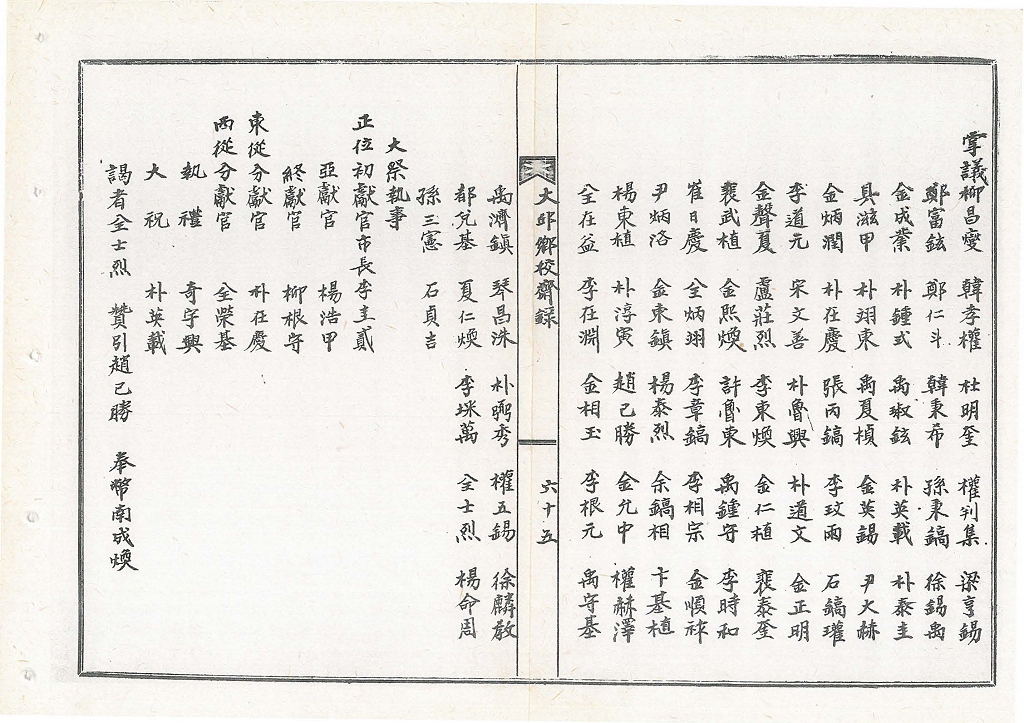 掌議柳昌燮 韓孝權 杜明奎 權判集 梁亨錫
鄭富鉉 鄭仁斗 韓秉希 孫秉鎬 徐錫禹
金成業 朴鍾式 禹淑鉉 朴英載 朴泰圭
具滋甲 朴珝東 禹夏楨 金英錫 尹大赫
金炳潤 朴在慶 張丙鎬 李玟雨 石鎬瓘
李道元 宋文善 朴魯興 朴道文 金正明
金聲夏 盧莊烈 李東煥 金仁植 裵泰奎
裵武植 金熙煥 許魯東 禹鍾守 李時和
崔日慶 全炳珝 李章鎬 李相宗 金愼祚
尹炳洛 金東鎮 楊泰烈 余鎬相 卞基植
楊東植 朴淳寅 趙己勝 金允中 權赫澤
全在益 李在淵 金相玉 李根元 禹守基
大邱鄉校齋錄 六十五
禹濟鎮 琴昌洙 朴弼秀 權五錫 徐麟教
都允基 夏仁煥 李埰萬 全士烈 楊命周
孫三憲 石貞吉
大祭執事
正位初獻官市長李圭貳
亞獻官 楊浩甲
終獻官 柳根守
東從分獻官 朴在慶
西從分獻官 全榮基
執禮 奇守興
大祝 朴英載
謁者全士烈 贊引趙己勝 奉幣南成煥